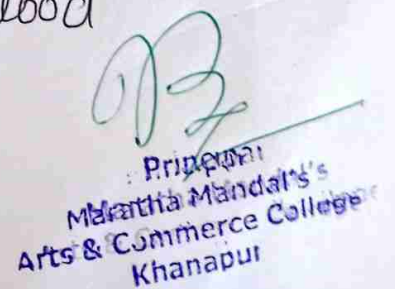 Principal
Maratha Mandal's
Arts & Commerce College
Khanapur